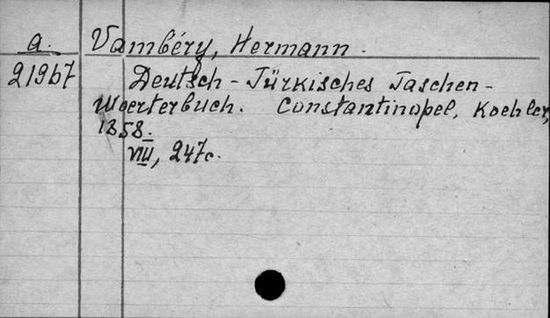 a. Vambéry, Hermann.
21967 Deutsch-Türkisches Taschen-
Woerterbuch. Constantinopel, Koehler,
1858.
VIII, 247c.